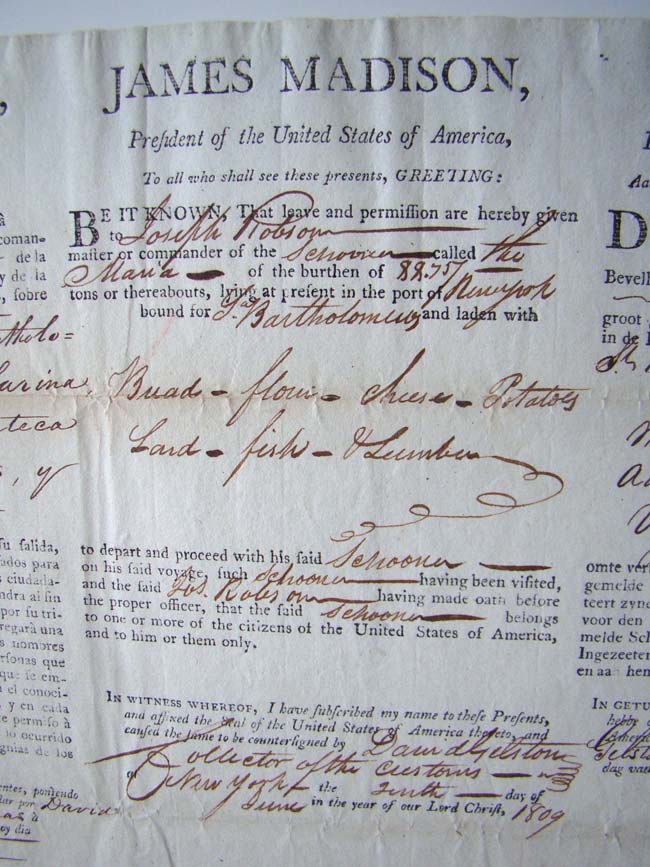 JAMES MADISON,
President of the United States of America,
To all who shall see these presents, GREETING:
BE IT KNOWN, That leave and permission are hereby given
to Joseph Robson
master or commander of the Schooner called the
Maria of the burthen of 88.75/
tons or thereabouts, lying at present in the port of Newyork
bound for St Bartholomews and laden with
Bread - flour - cheese - Potatoes
Lard - fish - & Lumber
to depart and proceed with his said Schooner
on his said voyage, such Schooner having been visited,
and the said Jos. Robson having made oath before
the proper officer, that the said Schooner belongs
to one or more of the citizens of the United States of America,
and to him or them only.
IN WITNESS WHEREOF, I have subscribed my name to these Presents,
and affixed the Seal of the United States of America thereto, and
caused the same to be countersigned by David Gelston
Collector of the Customs
at New York the Tenth day of
June in the year of our Lord Christ, 1809
à
coman-
de la
y de la
, sobre
tholo-
arina,
teca
, y
su salida,
ados para
s ciudada-
ndra ai fin
por su tri-
regará una
s nombres
rsonas que
que se em-
n el conoci-
, y en cada
te permiso à
lo ocurrido
gnias de los
entes, poniendo
dar por David
as à
oy dia
Aa
D
Bevell
groot
in de
St
omte ver
gemelde
teert zyne
voor den
melde Sch
Ingezeeter
en aan hem
IN GETU
hebbe
Gelst
dag van